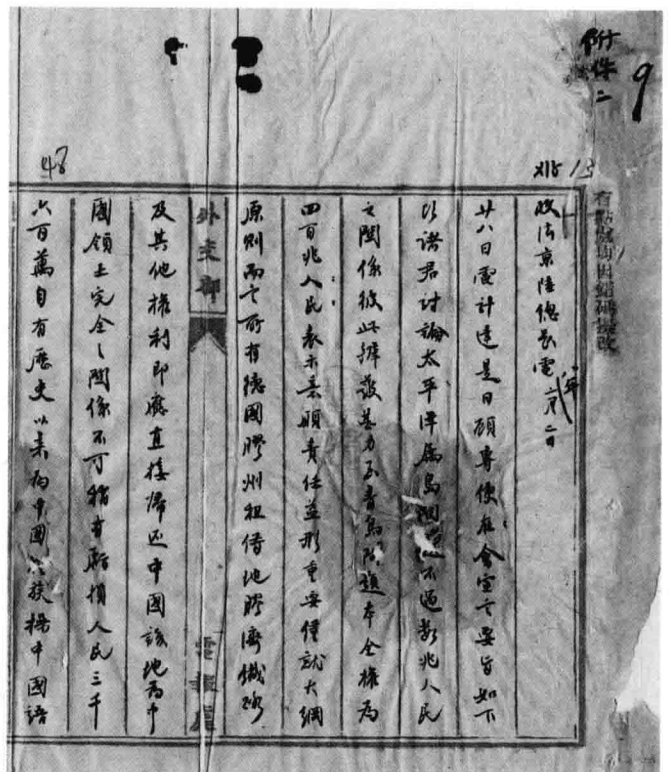 附件二
9
有點處均因錯碼擬改
13
48
收法京陸總長電
廿八日電計達是日顧專使在會宣言要旨如下
以諸君討論太平洋屬島問題不過數兆人民
之關係彼此辯護甚力至青島問題本全權為
四百兆人民表示志願責任益形重要僅就大綱
原則而言所有德國膠州租借地膠濟鐵路
外交部
及其他權利即應直接歸还中國該地為中
國領土完全之關係不可稍有虧損人民三千
六百萬自有歷史以來為中國 族操中國語